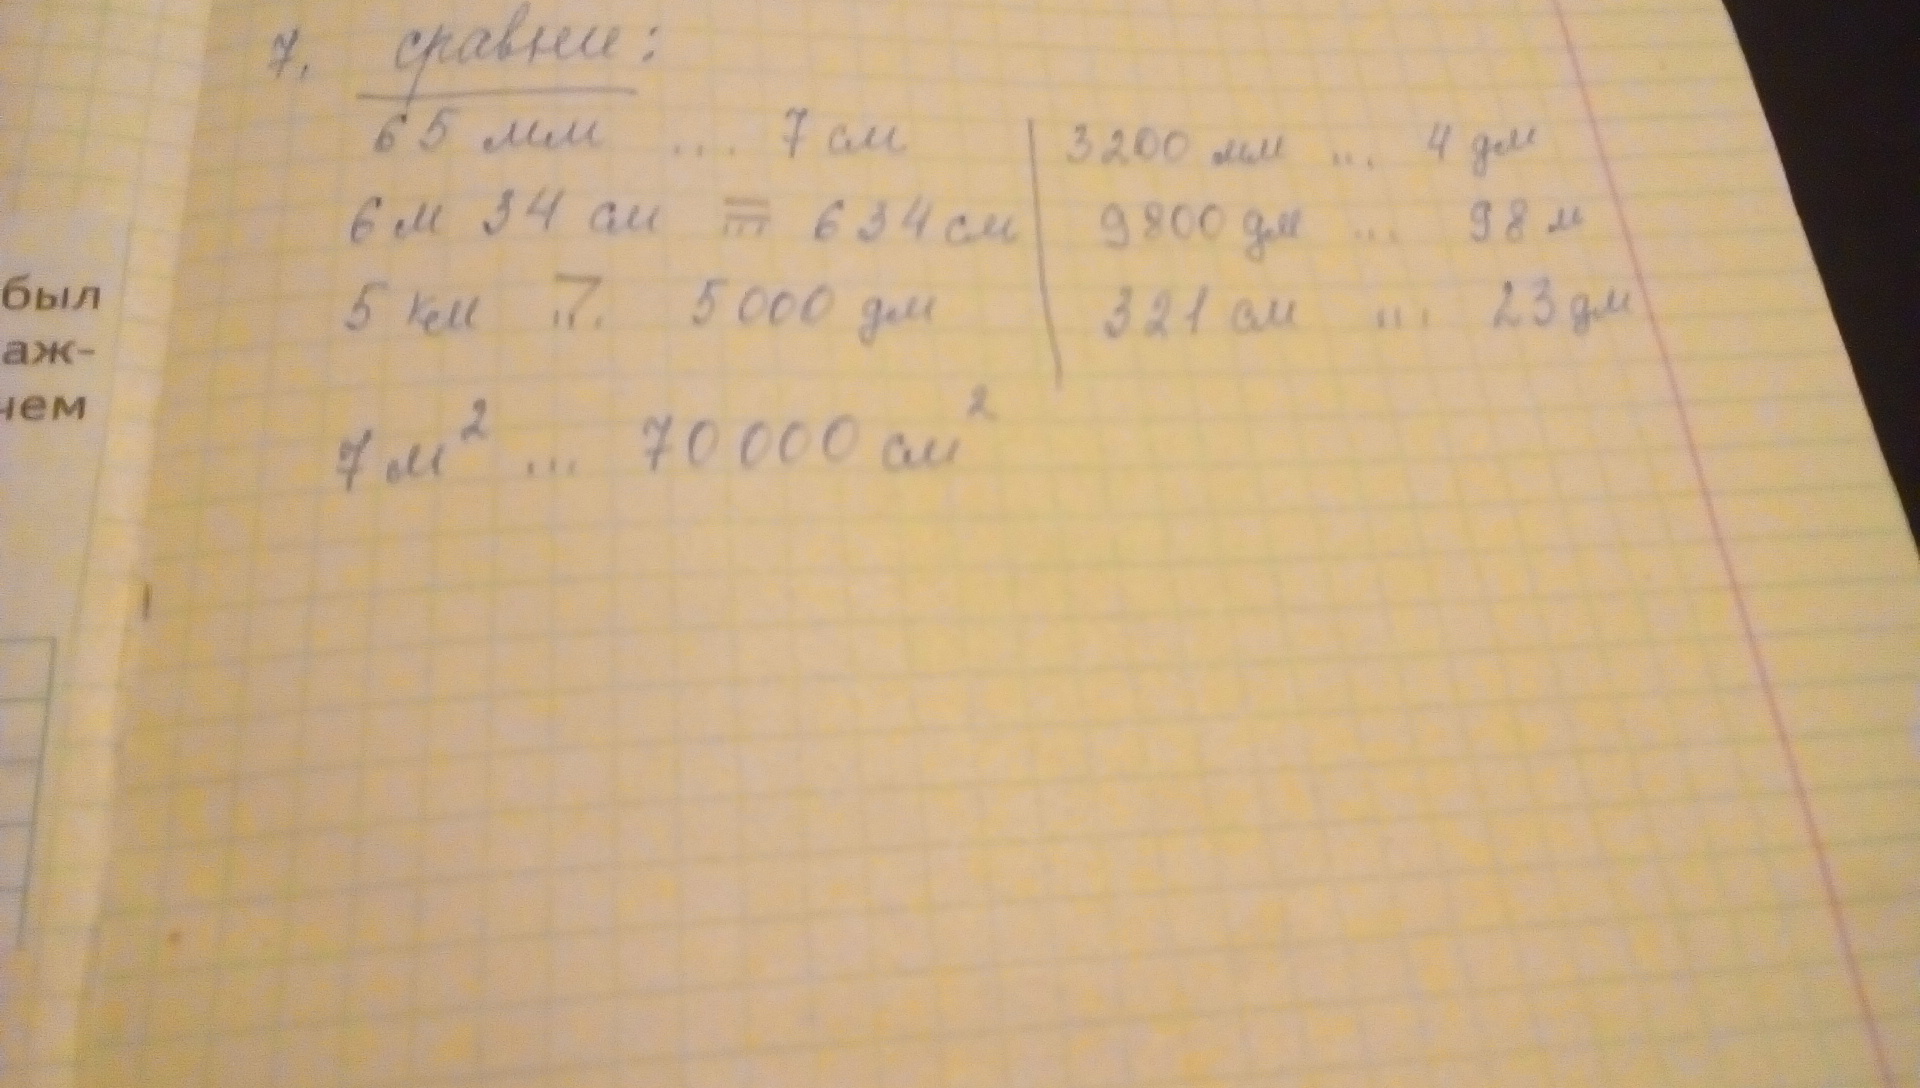 7. сравни:
65 мм ... 7 см
6 м 34 см = 634 см
5 км > 5000 дм
7 м² ... 70000 см²
3200 мм ... 4 дм
9800 дм ... 98 м
321 см ... 23 дм
был
аж-
чем